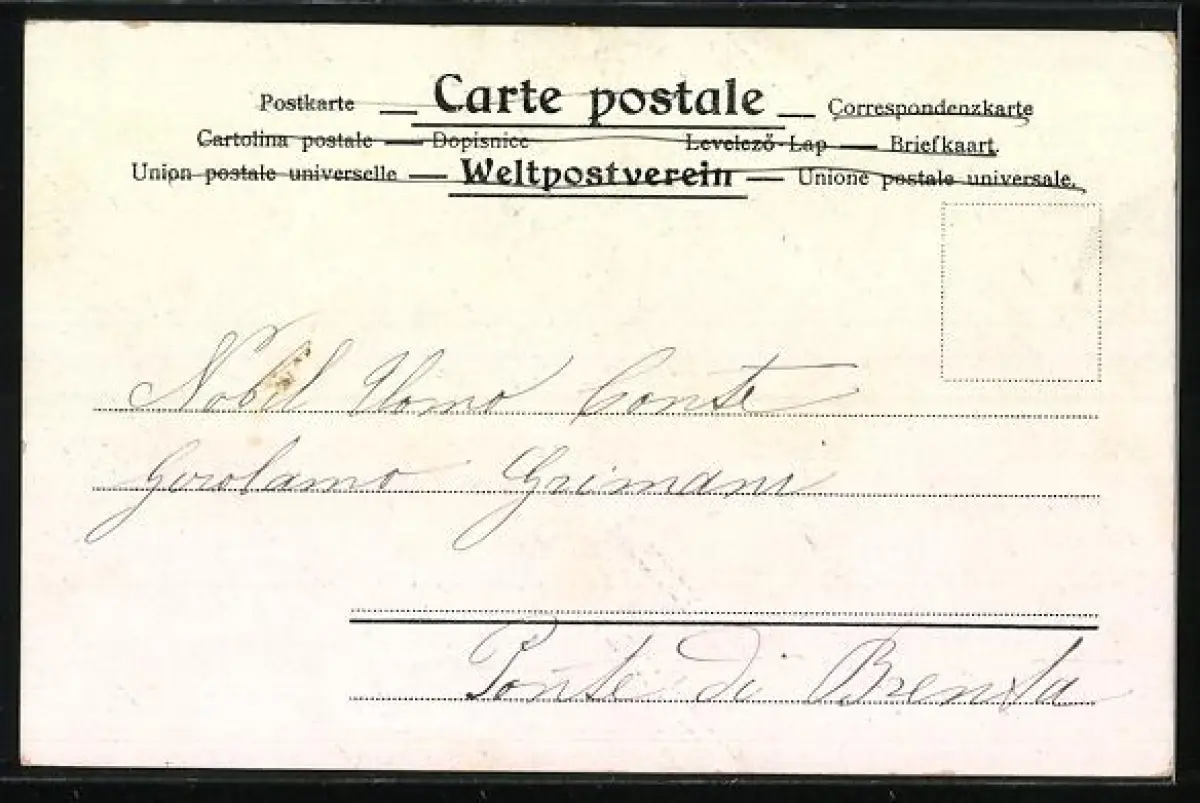 Postkarte — Carte postale — Correspondenzkarte
Cartolina postale — Dopisnice Levelező-Lap — Briefkaart.
Union postale universelle — Weltpostverein — Unione postale universale.
Nobil Uomo Conte
Girolamo Grimani
Ponte di Brenta